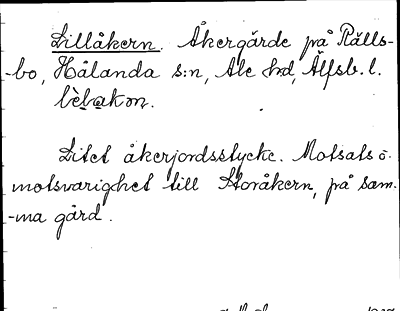 Lillåkern. Åkergärde på Rålls-
-bo, Hålanda s:n, Ale hd, Älfsb. l.
Litet åkerjordsstycke. Motsats o.
motsvarighet till Storåkern, på sam-
-ma gård.